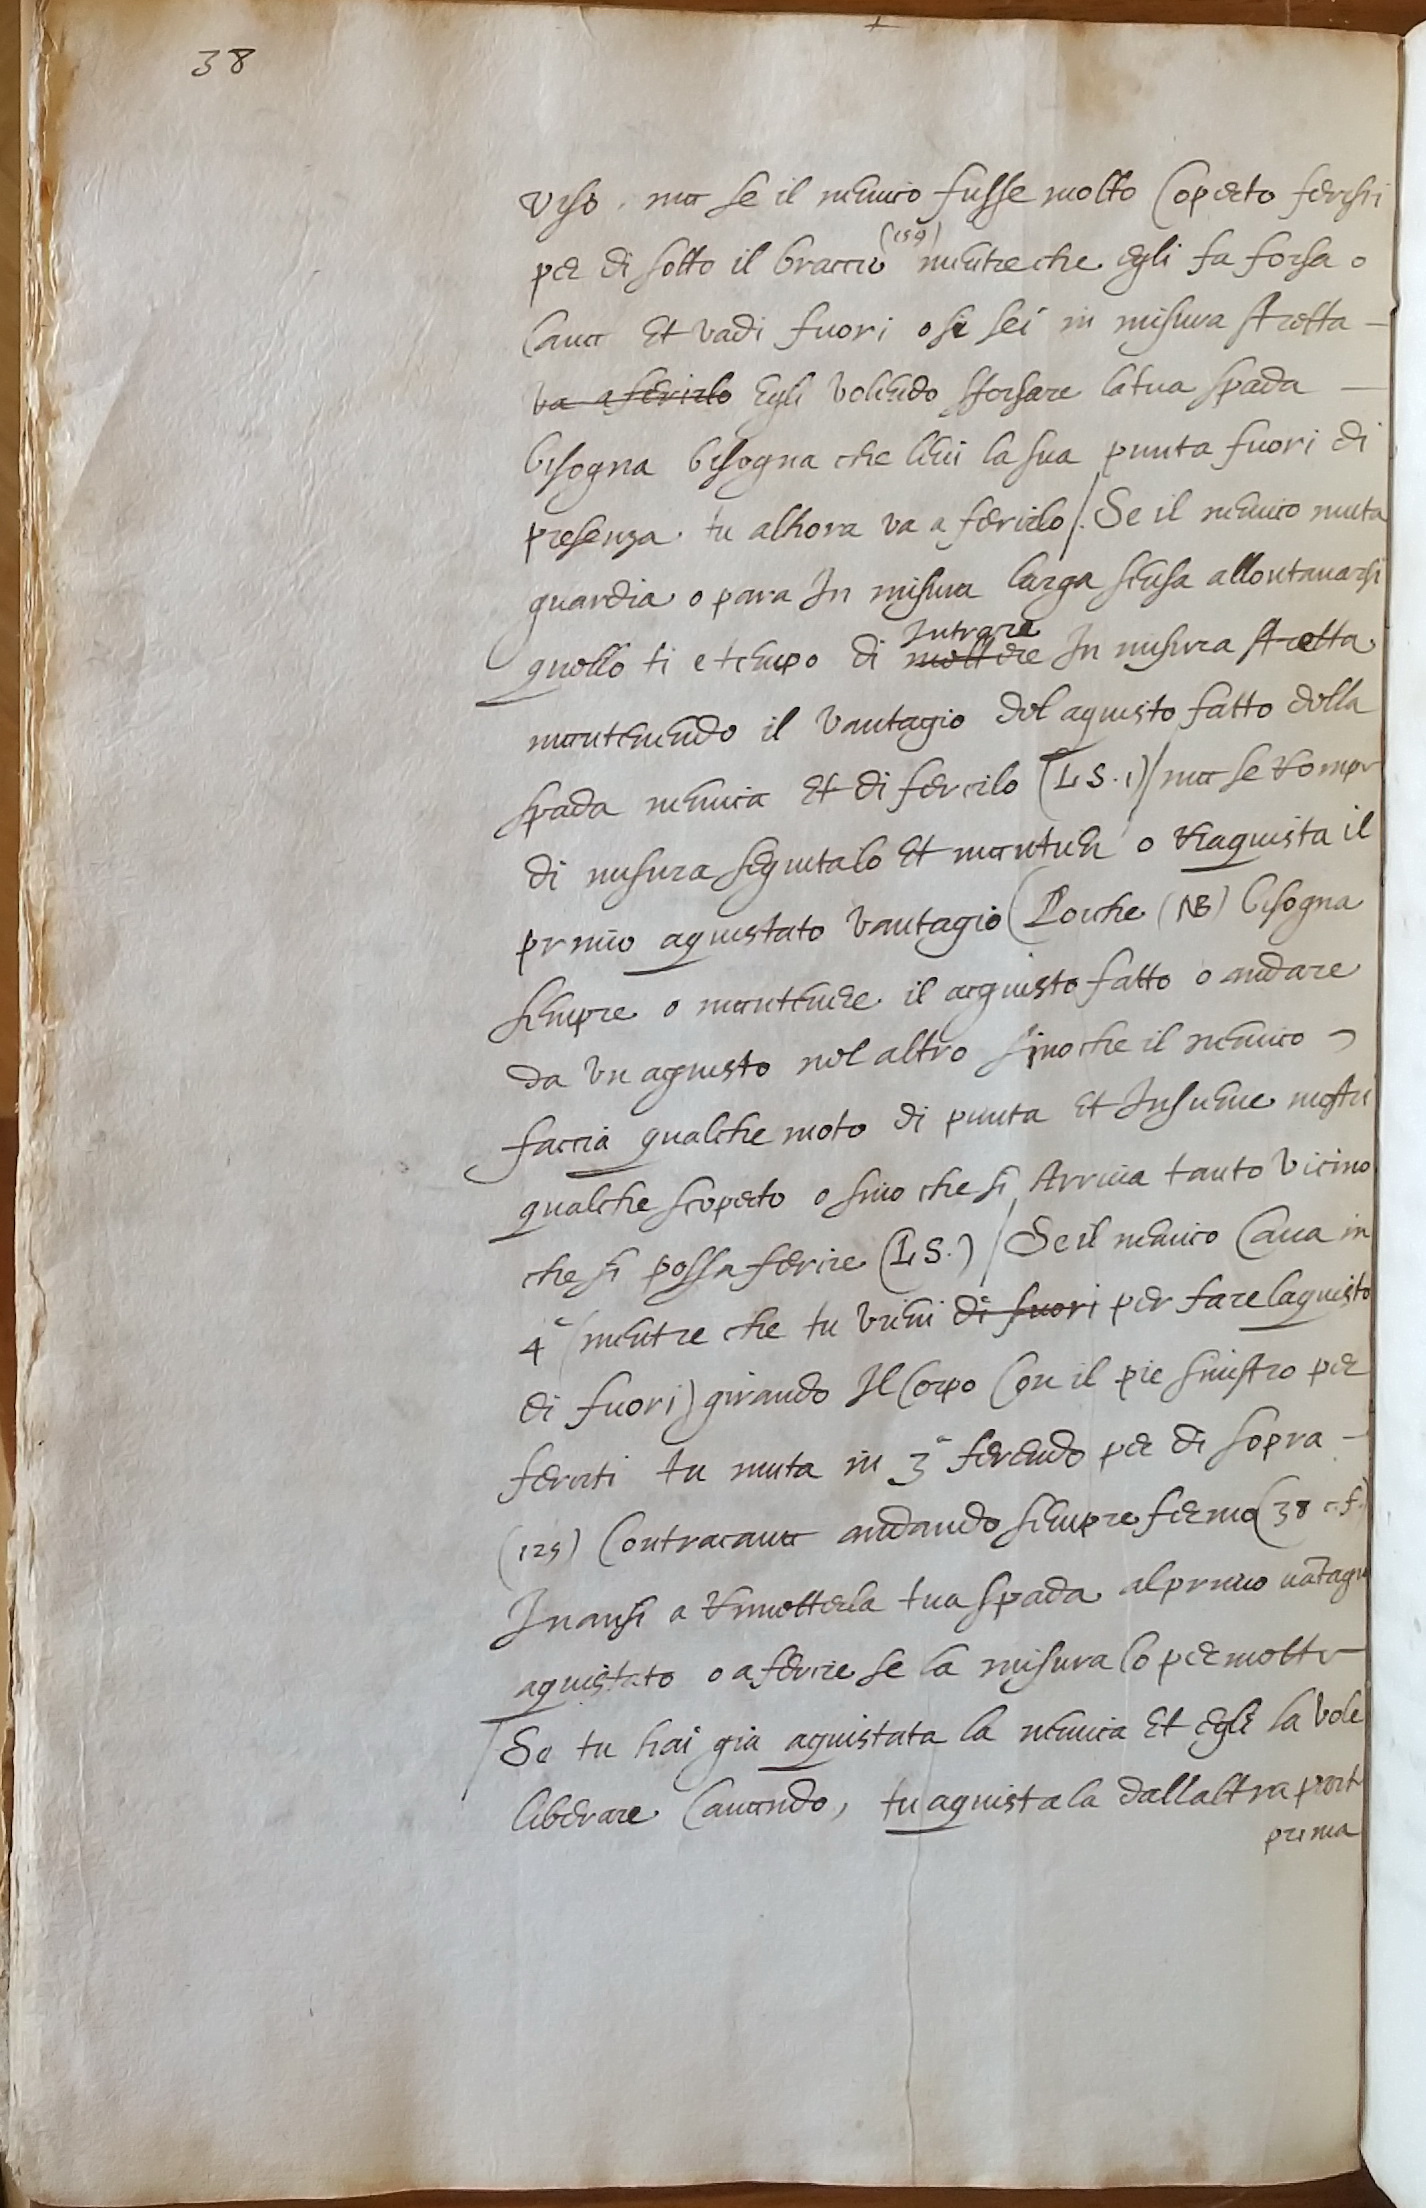 38
viso . ma se il nemico fusse molto Coperto ferissi
per di sotto il braccio (159) mentre che egli fa forsa o
Cava et vadi fuori o se sei in misura stretta —
va a ferirlo Egli volendo sforsare la tua spada —
bisogna bisogna che levi la sua punta fuori di
presenza . tu alhora va a ferirlo /. Se il nemico muta
guardia o para In misura larga sensa allontanarsi
quello ti e tempo di mettere Intrare In misura stretta
mantenendo il vantagio del aquisto fatto della
spada nemica et di ferirlo (L S . 1) / ma se rompe
di misura seguitalo et mantien o riaquista il
primo aquistato vantagio (Perche (NB) bisogna
sempre o mantenere il acquisto fatto o andare
da un aquisto nel altro sino che il nemico
faccia qualche moto di punta et Insieme mostri
qualche scoperto o sino che si Arriva tanto vicino
che si possa ferire (L S .) / Se il nemico Cava in
4ª (mentre che tu vieni di fuori per fare laquisto
di fuori) girando Il Corpo Con il pie sinistro per
ferirti tu muta in 3ª ferendo per di sopra —
(125) Contracava andando sempre fermo (38 c.f.)
Inansi a rimetter la tua spada al primo vantagio
aquistato o a ferire se la misura lo permette
/ Se tu hai gia aquistata la nemica et egli la vole
liberare Cavando, tu aquistala dall altra parte
prima